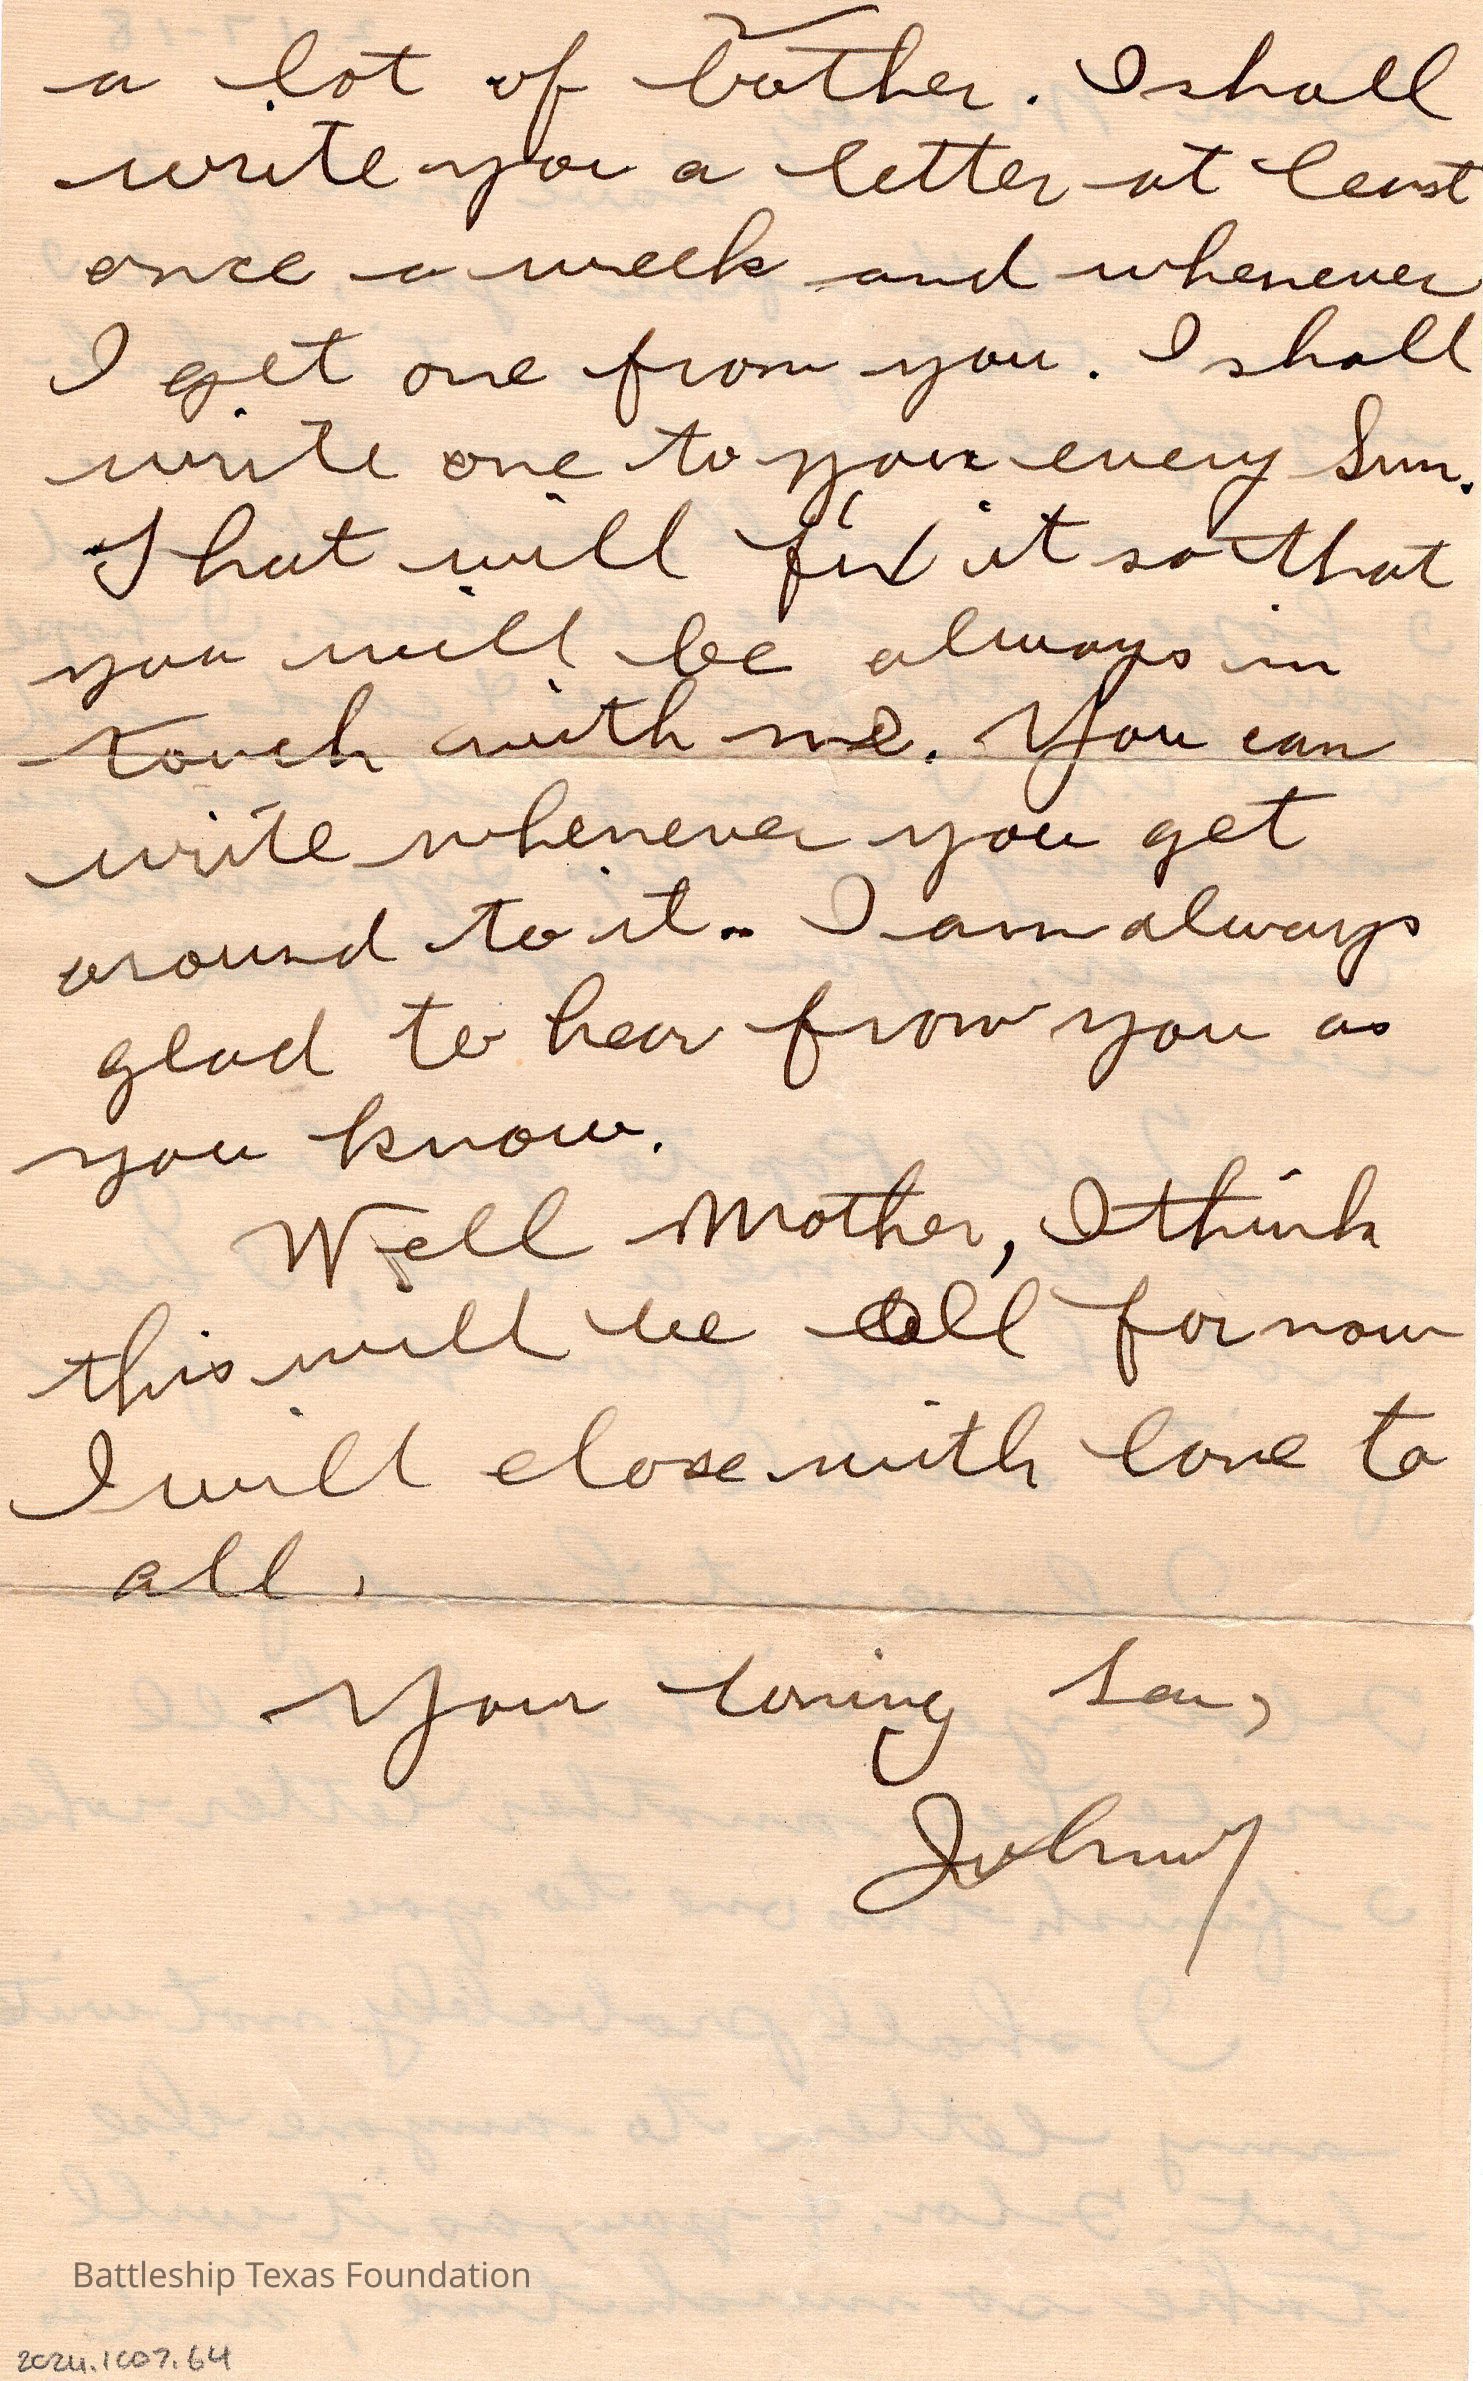 a lot of bother. I shall
write you a letter at least
once a week and whenever
I get one from you. I shall
write one to you every Sun.
That will fix it so that
you will be always in
touch with me. You can
write whenever you get
around to it. I am always
glad to hear from you as
you know.
Well Mother, I think
this will be all for now
I will close with love to
all.
Your loving Son,
Johnny
Battleship Texas Foundation
2024.1007.64